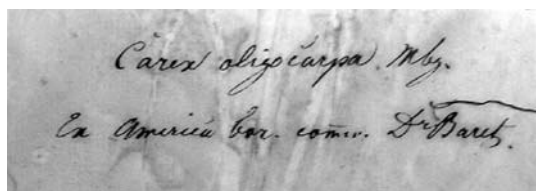 Carex oligocarpa. Mbg.
Ex America bor. com̄. Dr Baretz.